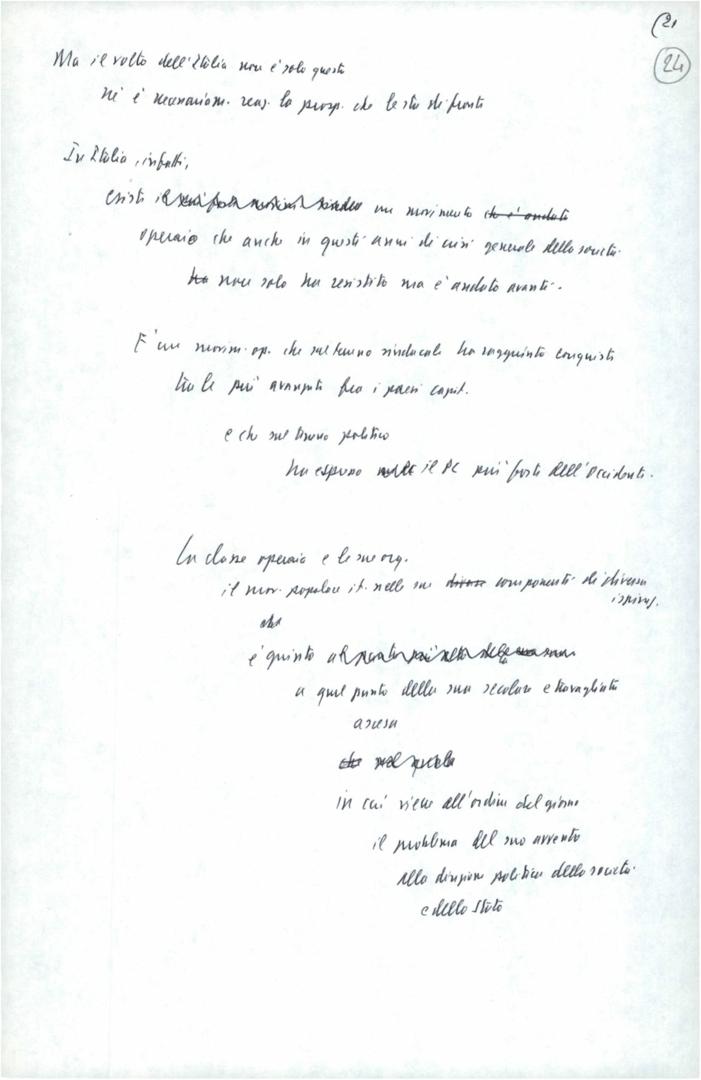 (2,
24
Ma il volto dell'Italia non è solo questo
Nè è necessariam. reaz. la prosp. che le sta di fronte
In Italia, infatti,
esiste un movimento che è andato
operaio che anche in questi anni di crisi generale della società
ha non solo ha resistito ma è andato avanti.
E' un movim. op. che sul terreno sindacale ha raggiunto conquiste
tra le più avanzate fra i paesi capit.
e che sul terreno politico
ha espresso il PC più forte dell'Occidente.
La classe operaia e le sue org.
il mov. popolare it. nelle sue diverse componenti di diversa
ispiraz.
che
è giunto al punto più alto della sua
a quel punto della sua secolare e travagliata
ascesa
che nel quale
in cui viene all'ordine del giorno
il problema del suo avvento
alla direzione politica della società
e dello Stato